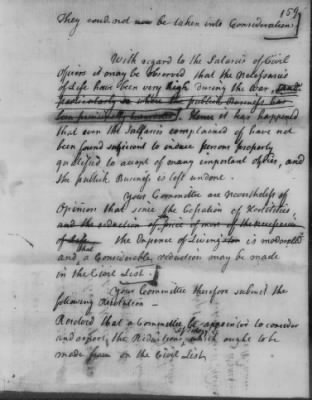 159
They could not now be taken into Consideration.
With regard to the Salaries of Civil
Officers it may be observed that the Necessaries
of Life have been very high during the War,
particularly so where the publick Business has
been principally transacted. Hence it has happened
that even the Sallaries complained of have not
been found sufficient to induce persons properly
qualified to accept of many important offices, and
the publick Business is left undone.
Your Committee are nevertheless of
Opinion that since the Cessation of Hostilities,
and the reduction of price of most of the necessaries
of Life the Expence of Living is moderated
that
and a Considerable reduction may be made
in the Civil List.
Your Committee therefore submit the
following Resolution —
Resolved that a Committee be appointed to consider
and report, the Reductions, which ought to be
made from on the Civil List,